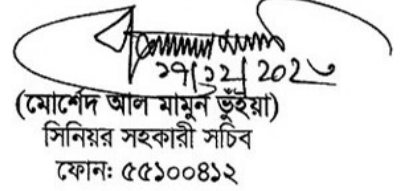 ১৭|১২| 202৩
(মোর্শেদ আল মামুন ভুঁইয়া)
সিনিয়র সহকারী সচিব
ফোনঃ ৫৫১০০৪১২